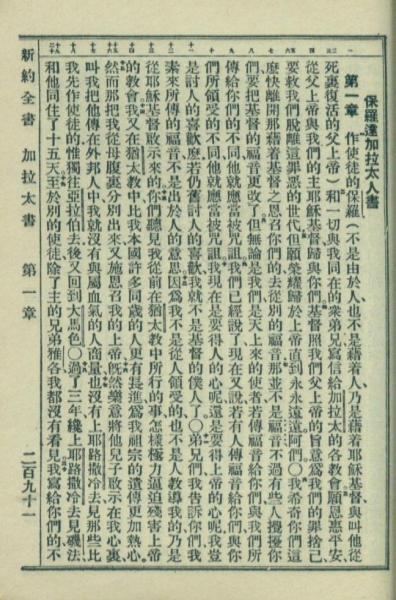 保羅達加拉太人書
第一章 作使徒的保羅(不是由於人也不是藉着人乃是藉着耶穌基督與叫他從
死裏復活的父上帝)和一切與我同在的衆弟兄寫信給加拉太的各教會願恩惠平安
從父上帝與我們的主耶穌基督歸與你們基督照我們父上帝的旨意爲我們的罪捨己
要救我們脫離這罪惡的世代但願榮耀歸於上帝直到永永遠遠阿們○我希奇你們這
麽快離開那藉着基督之恩召你們的去從別的福音那並不是福音不過有些人攪擾你
們要把基督的福音更改了但無論是我們是天上來的使者若傳福音給你們與我們所
傳給你們的不同他就應當被咒詛我們已經說了現在又說若有人傳福音給你們與你
們所領受的不同他就應當被咒詛我現在是要得人的心呢還是要得上帝的心呢我豈
是討人的喜歡麽若仍舊討人的喜歡我就不是基督的僕人了○弟兄們我告訴你們我
素來所傳的福音不是出於人的意思因爲我不是從人領受的也不是人教導我的乃是
從耶穌基督啟示來的你們聽見我從前在猶太教中所行的事怎樣極力逼迫殘害上帝
的教會我又在猶太教中比我本國許多同歲的人更有長進爲我祖宗的遺傳更加熱心
然而那把我從母腹裏分別出來又施恩召我的上帝旣然樂意將他兒子啟示在我心裏
叫我把他傳在外邦人中我就沒有與屬血氣的人商量也沒有上耶路撒冷去見那些比
我先作使徒的惟獨往亞拉伯去後又回到大馬色○過了三年纔上耶路撒冷去見磯法
和他同住了十五天至於別的使徒除了主的兄弟雅各我都沒有看見我寫給你們的不
新約全書 加拉太書 第一章 二百九十一